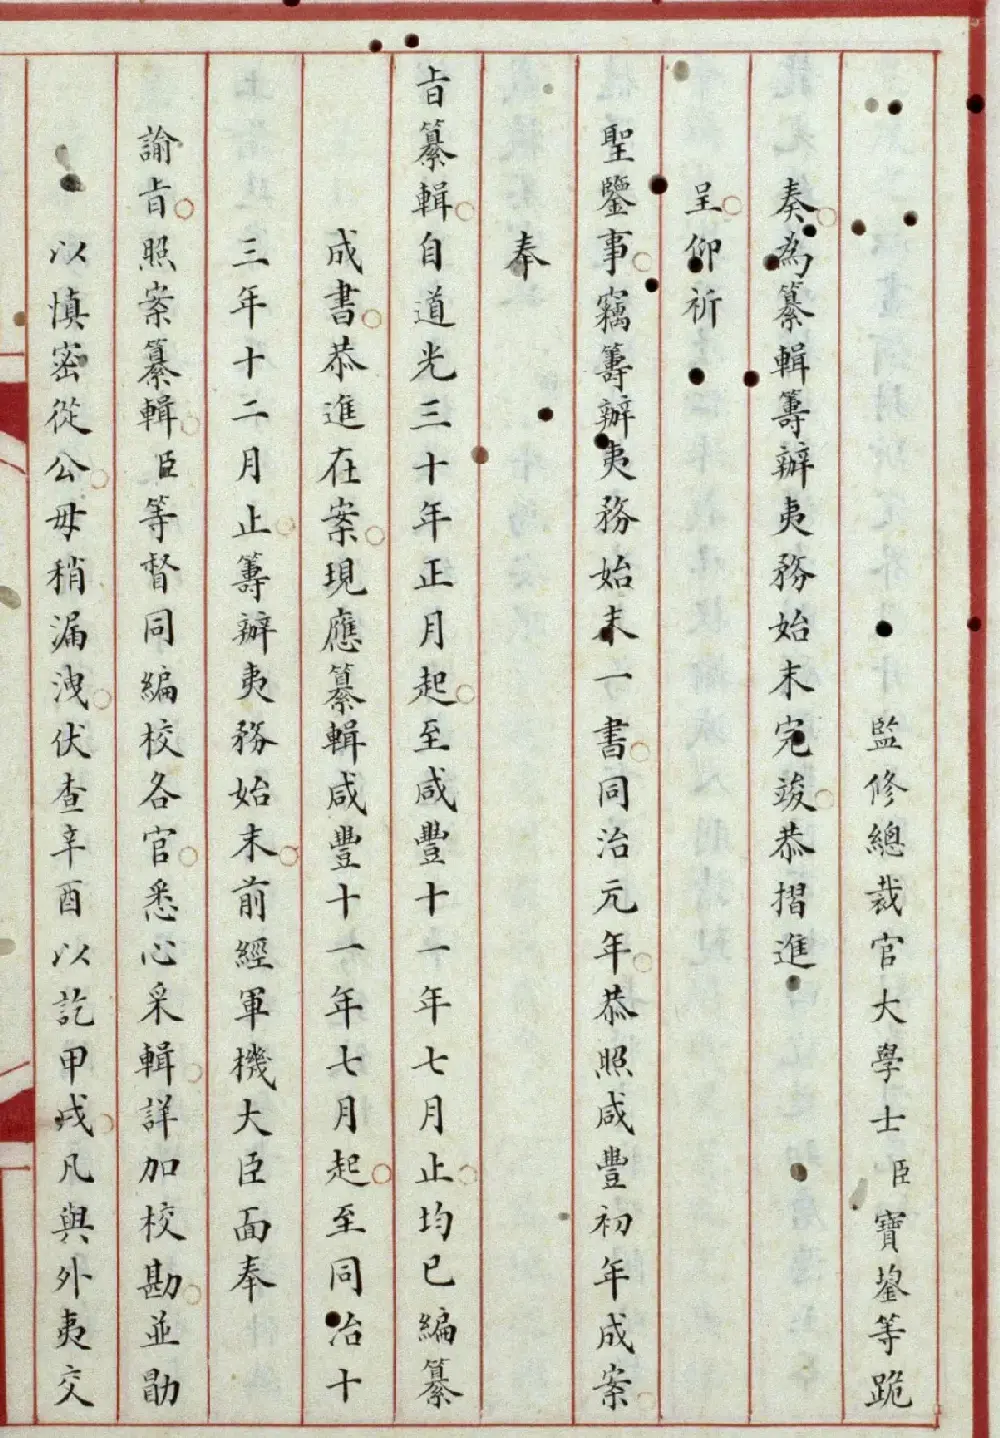 監修總裁官大學士臣寶鋆等跪
奏為纂輯籌辦夷務始末完竣恭摺進
呈仰祈
聖鑒事竊籌辦夷務始末一書同治元年恭照咸豐初年成案
奉
旨纂輯自道光三十年正月起至咸豐十一年七月止均已編纂
成書恭進在案現應纂輯咸豐十一年七月起至同治十
三年十二月止籌辦夷務始末前經軍機大臣面奉
諭旨照案纂輯臣等督同編校各官悉心采輯詳加校勘並勖
以慎密從公毋稍漏洩伏查辛酉以訖甲戌凡與外夷交